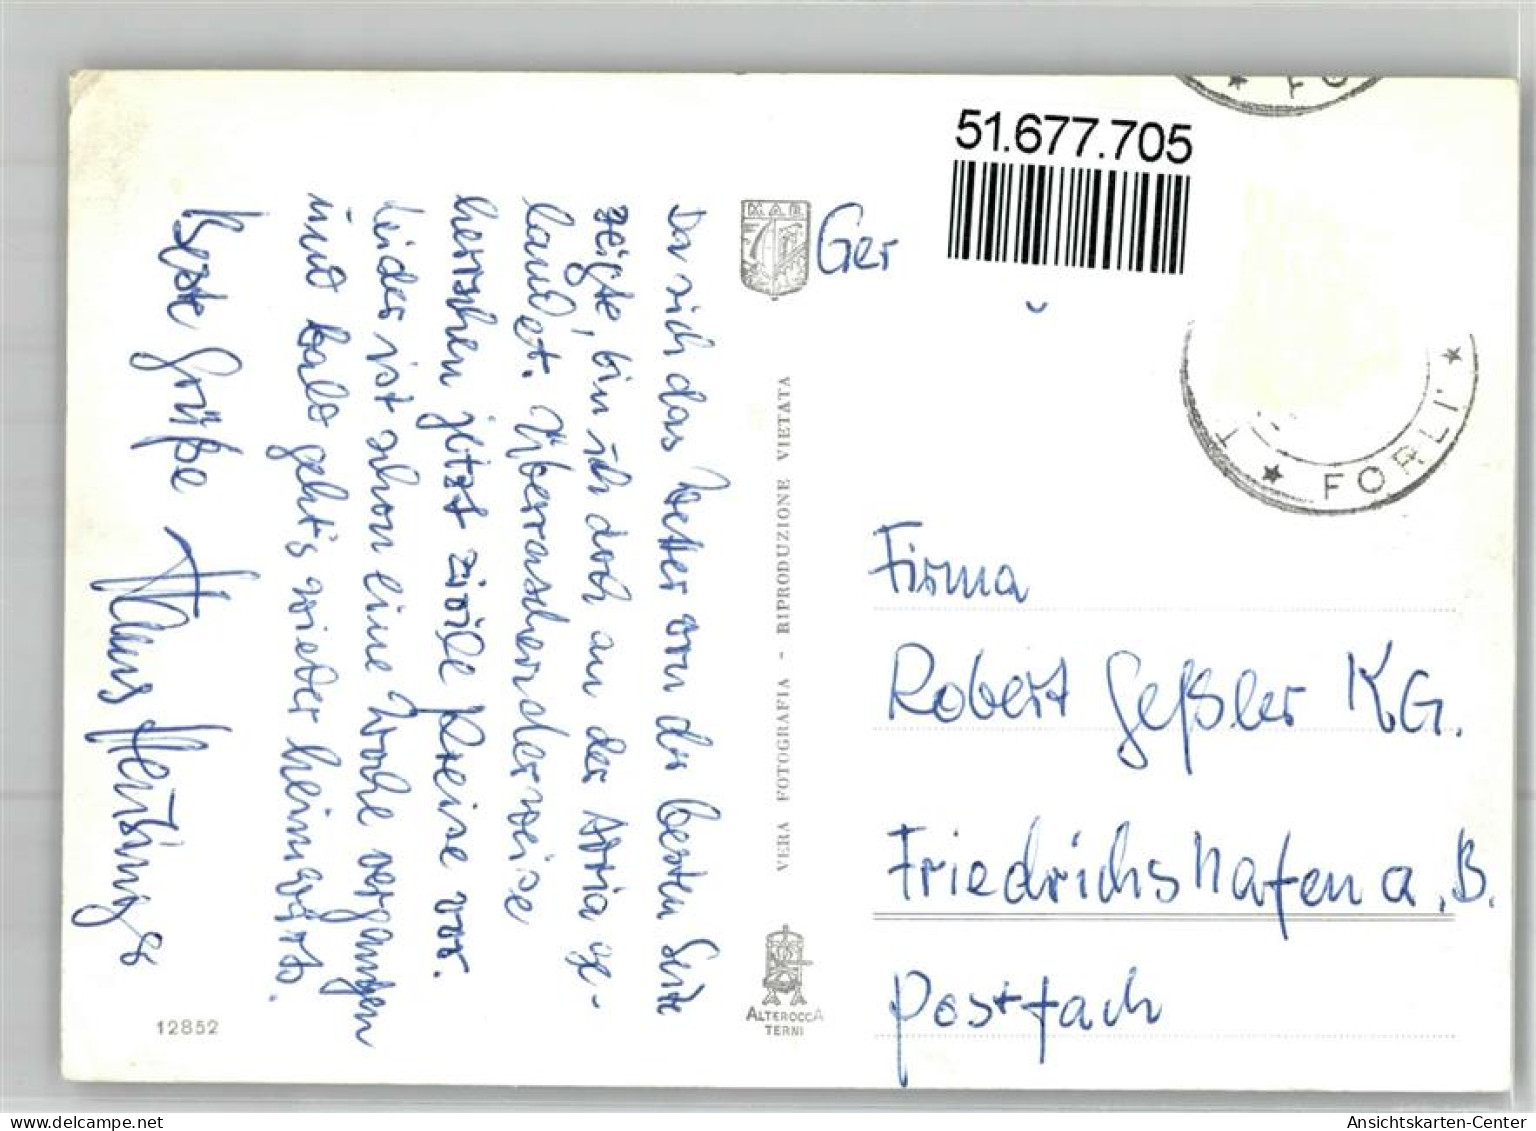 Da sich das Wetter von der besten Seite
zeigte, bin ich doch an der Adria ge-
landet. Überraschenderweise
herrschen jetzt zivile Preise vor.
Leider ist schon eine Woche vergangen
und bald geht's wieder heimwärts.
Beste Grüße
12852
M.A.R.
VERA FOTOGRAFIA - RIPRODUZIONE VIETATA
ALTEROCCA
TERNI
Ger
51.677.705
FO
FORLI'
Firma
Robert Geßler KG.
Friedrichshafen a.B.
Postfach
Ansichtskarten-Center